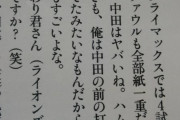 ライマックスでは4試
ァウルも全部紙一重だ
中田はヤバいね。ハム
も、俺は中田の前の打
たみたいなもんだから
すごいよな。
わり君さん（ライオン
ですか？（笑）